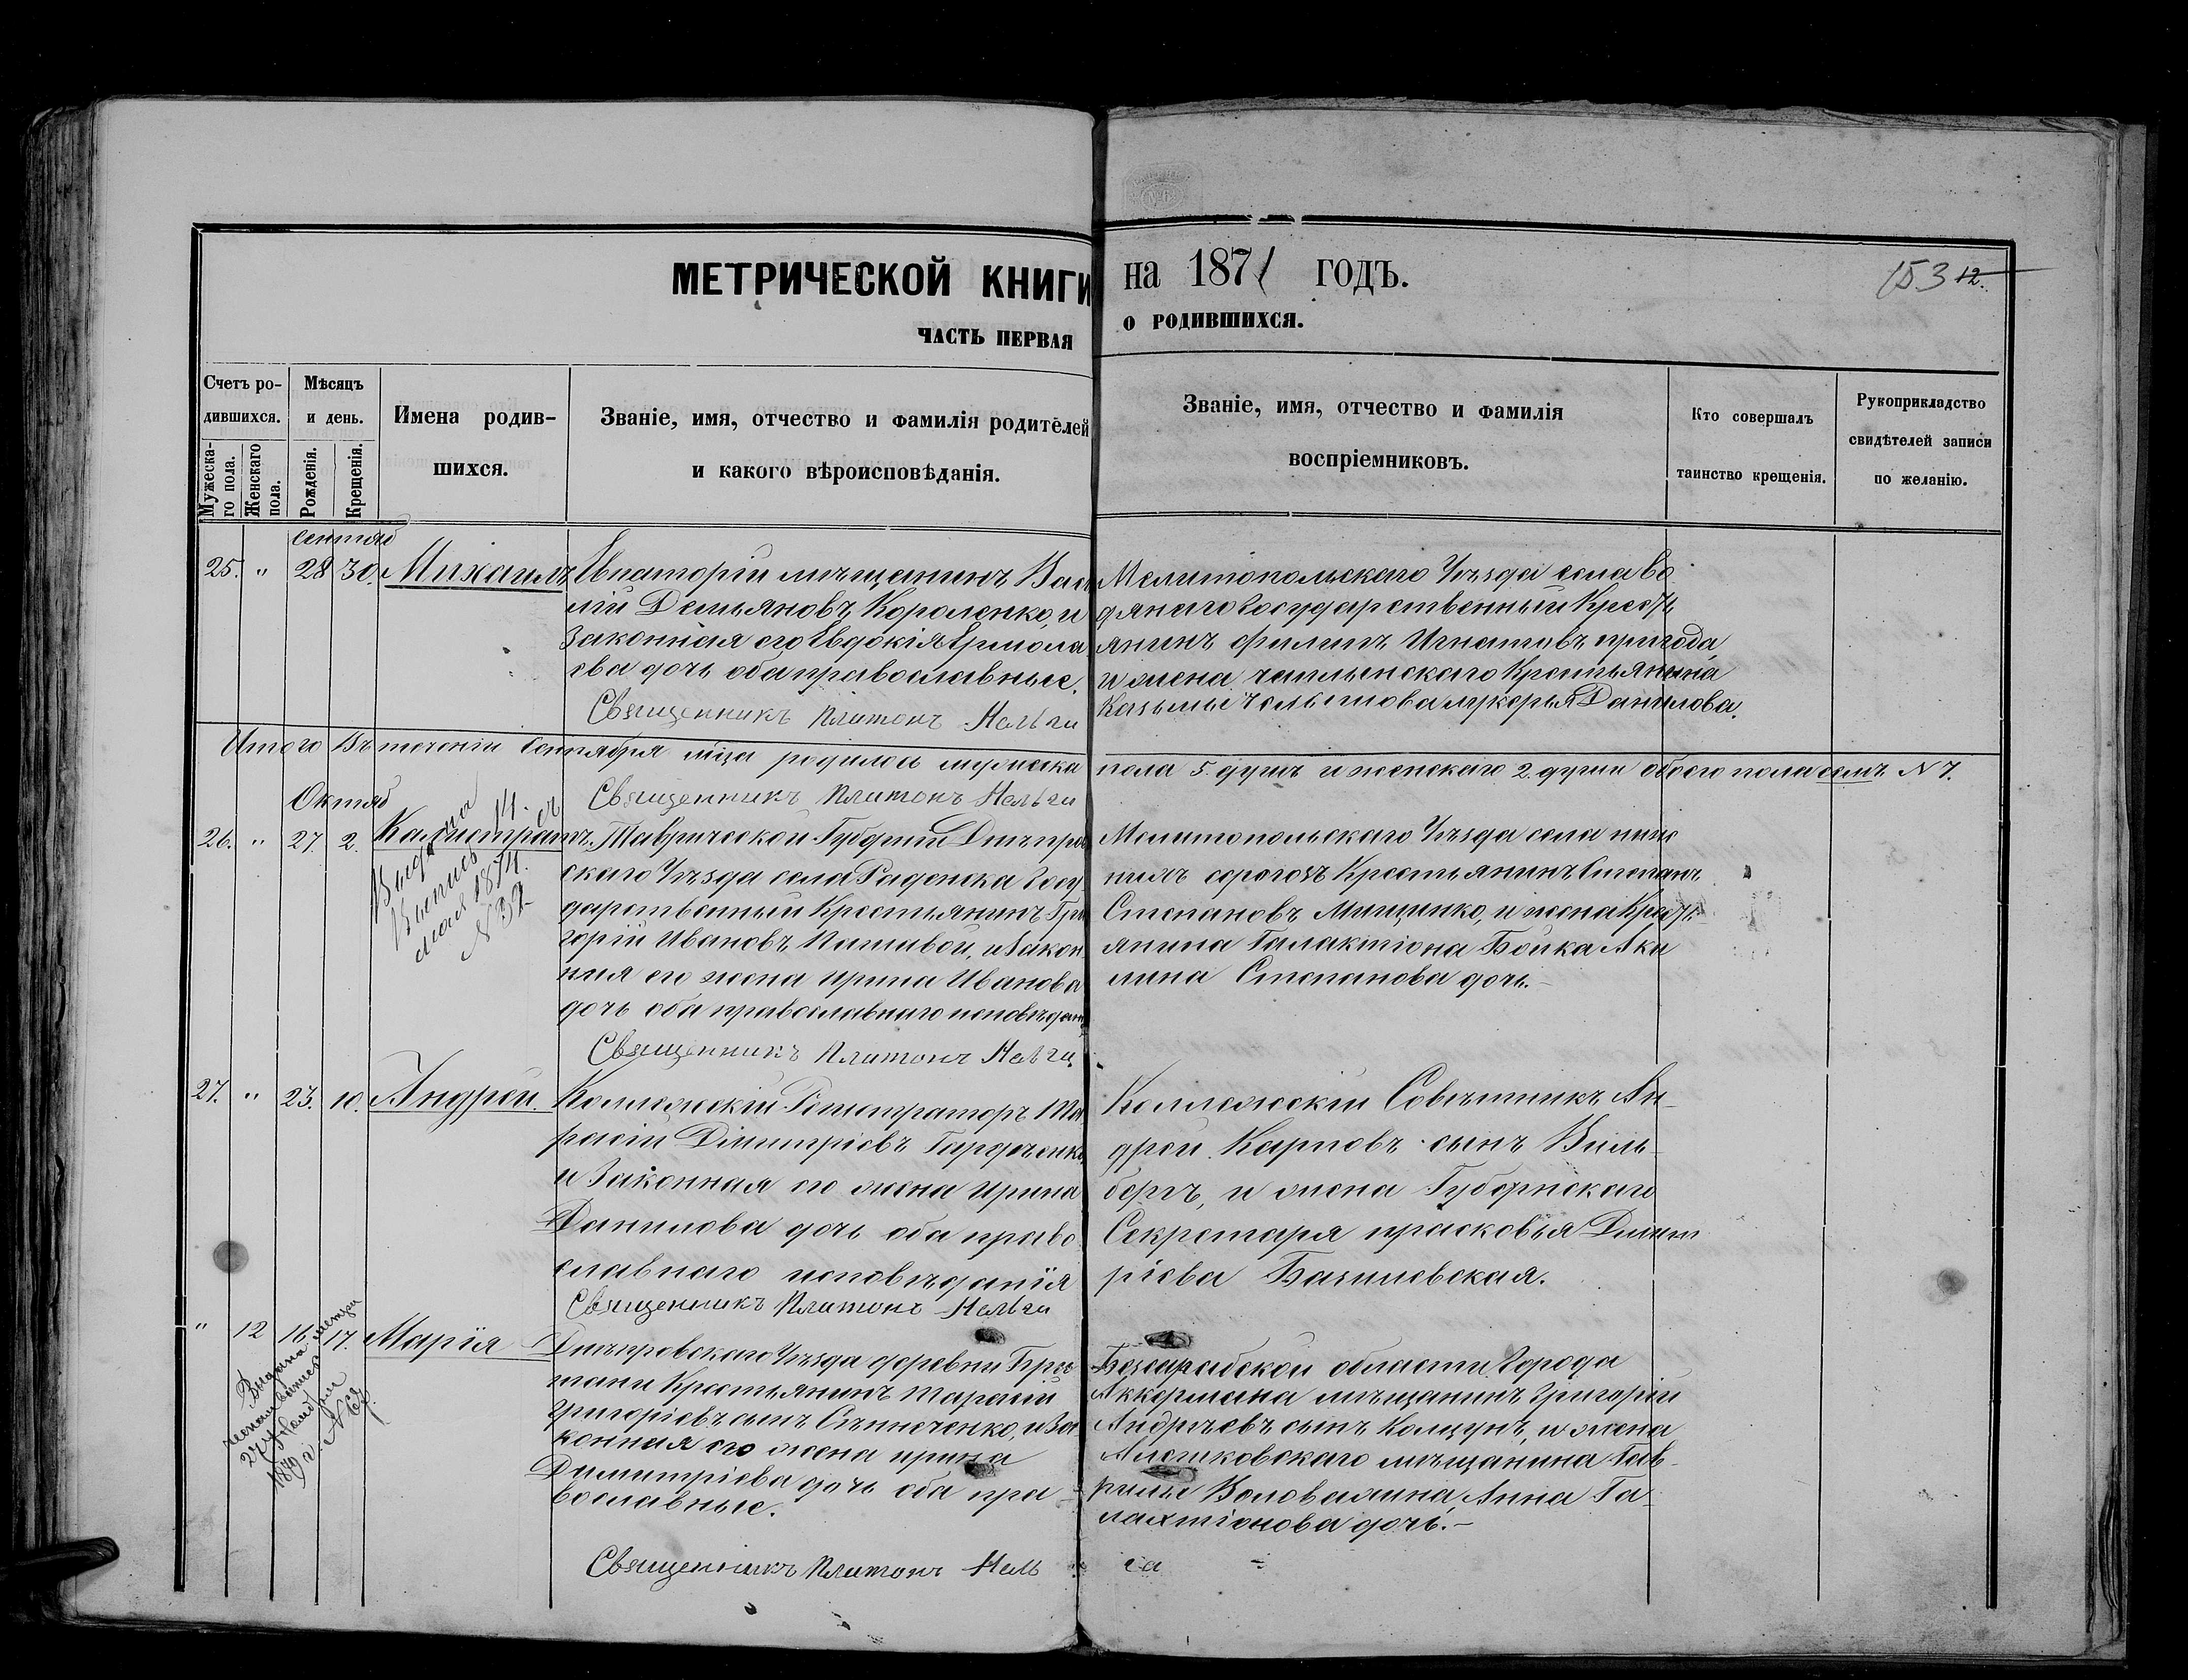 МЕТРИЧЕСКОЙ КНИГИ
на 1871 ГОДЪ.
153 12.
ЧАСТЬ ПЕРВАЯ
О РОДИВШИХСЯ.
Счетъ ро-
дившихся.
Мужеска-
го пола.
Женскаго
пола.
Мѣсяцъ
и день.
Рожденія.
Крещенія.
Имена родив-
шихся.
Званіе, имя, отчество и фамилія родителей
и какого вѣроисповѣданія.
Званіе, имя, отчество и фамилія
воспріемниковъ.
Кто совершалъ
таинство крещенія.
Рукоприкладство
свидѣтелей записи
по желанію.
Сентяб
25. " 28 30. Михаилъ
Евпаторіи мѣщанинъ Васи
лій Демьяновъ Короленко, и
Законная его Евдокія Ермола
ева дочь оба православные.
Священникъ Платонъ
Мелитопольскаго Уѣзда села Во
дянаго Государственный Крест
янинъ Филипъ Игнатовъ пригода,
и жена чаплинскаго Крестьянина
Казьмы Данилова.
Итого Въ теченіи Сентября мца родилось мужеска
пола 5. душъ и женскаго 2. души обоего пола семь N 7.
Священникъ Платонъ
Октяб
26. " 27 2. Калистратъ.
Выдана
1874.
N 32
Таврической Губерніи Днѣпров
скаго Уѣзда села Раденска Госу
дарственный Крестьянинъ Гри
горій Ивановъ и Закон
ная его жена Ирина Иванова
дочь оба православнаго исповѣдан
Священникъ Платонъ
Мелитопольскаго Уѣзда села ниж
нихъ серогозъ Крестьянинъ Степанъ
Степановъ Мищенко, и жена Крест
янина Галактіона Бойка Аку
лина Степанова дочь.
27. " 23. 10. Андрей.
Коллежскій Регистраторъ Та
расій Димитріевъ Гардченко,
и Законная его жена Ирина
Данилова дочь оба право
славнаго исповѣданія
Священникъ Платонъ
Коллежскій Совѣтникъ Ан-
дрей Карповъ сынъ Виль-
бергъ, и жена Губернскаго
Секретаря прасковья Димит
ріева Базилевская.
" 12 16. 17. Марія
Выдана метри
27
1879 г. N 62.
Днѣпровскаго Уѣзда деревни Бри
тани Крестьянинъ Тарасій
Григоріевъ сынъ и За
конная его жена ирина
Димитріева дочь оба пра-
вославные.
Безсарабской области Города
Аккермана мѣщанинъ Григорій
Андрѣевъ сынъ и жена
Алешковскаго мѣщанина Гав-
рила Анна Га-
лактіонова дочь.-
Священникъ Платонъ